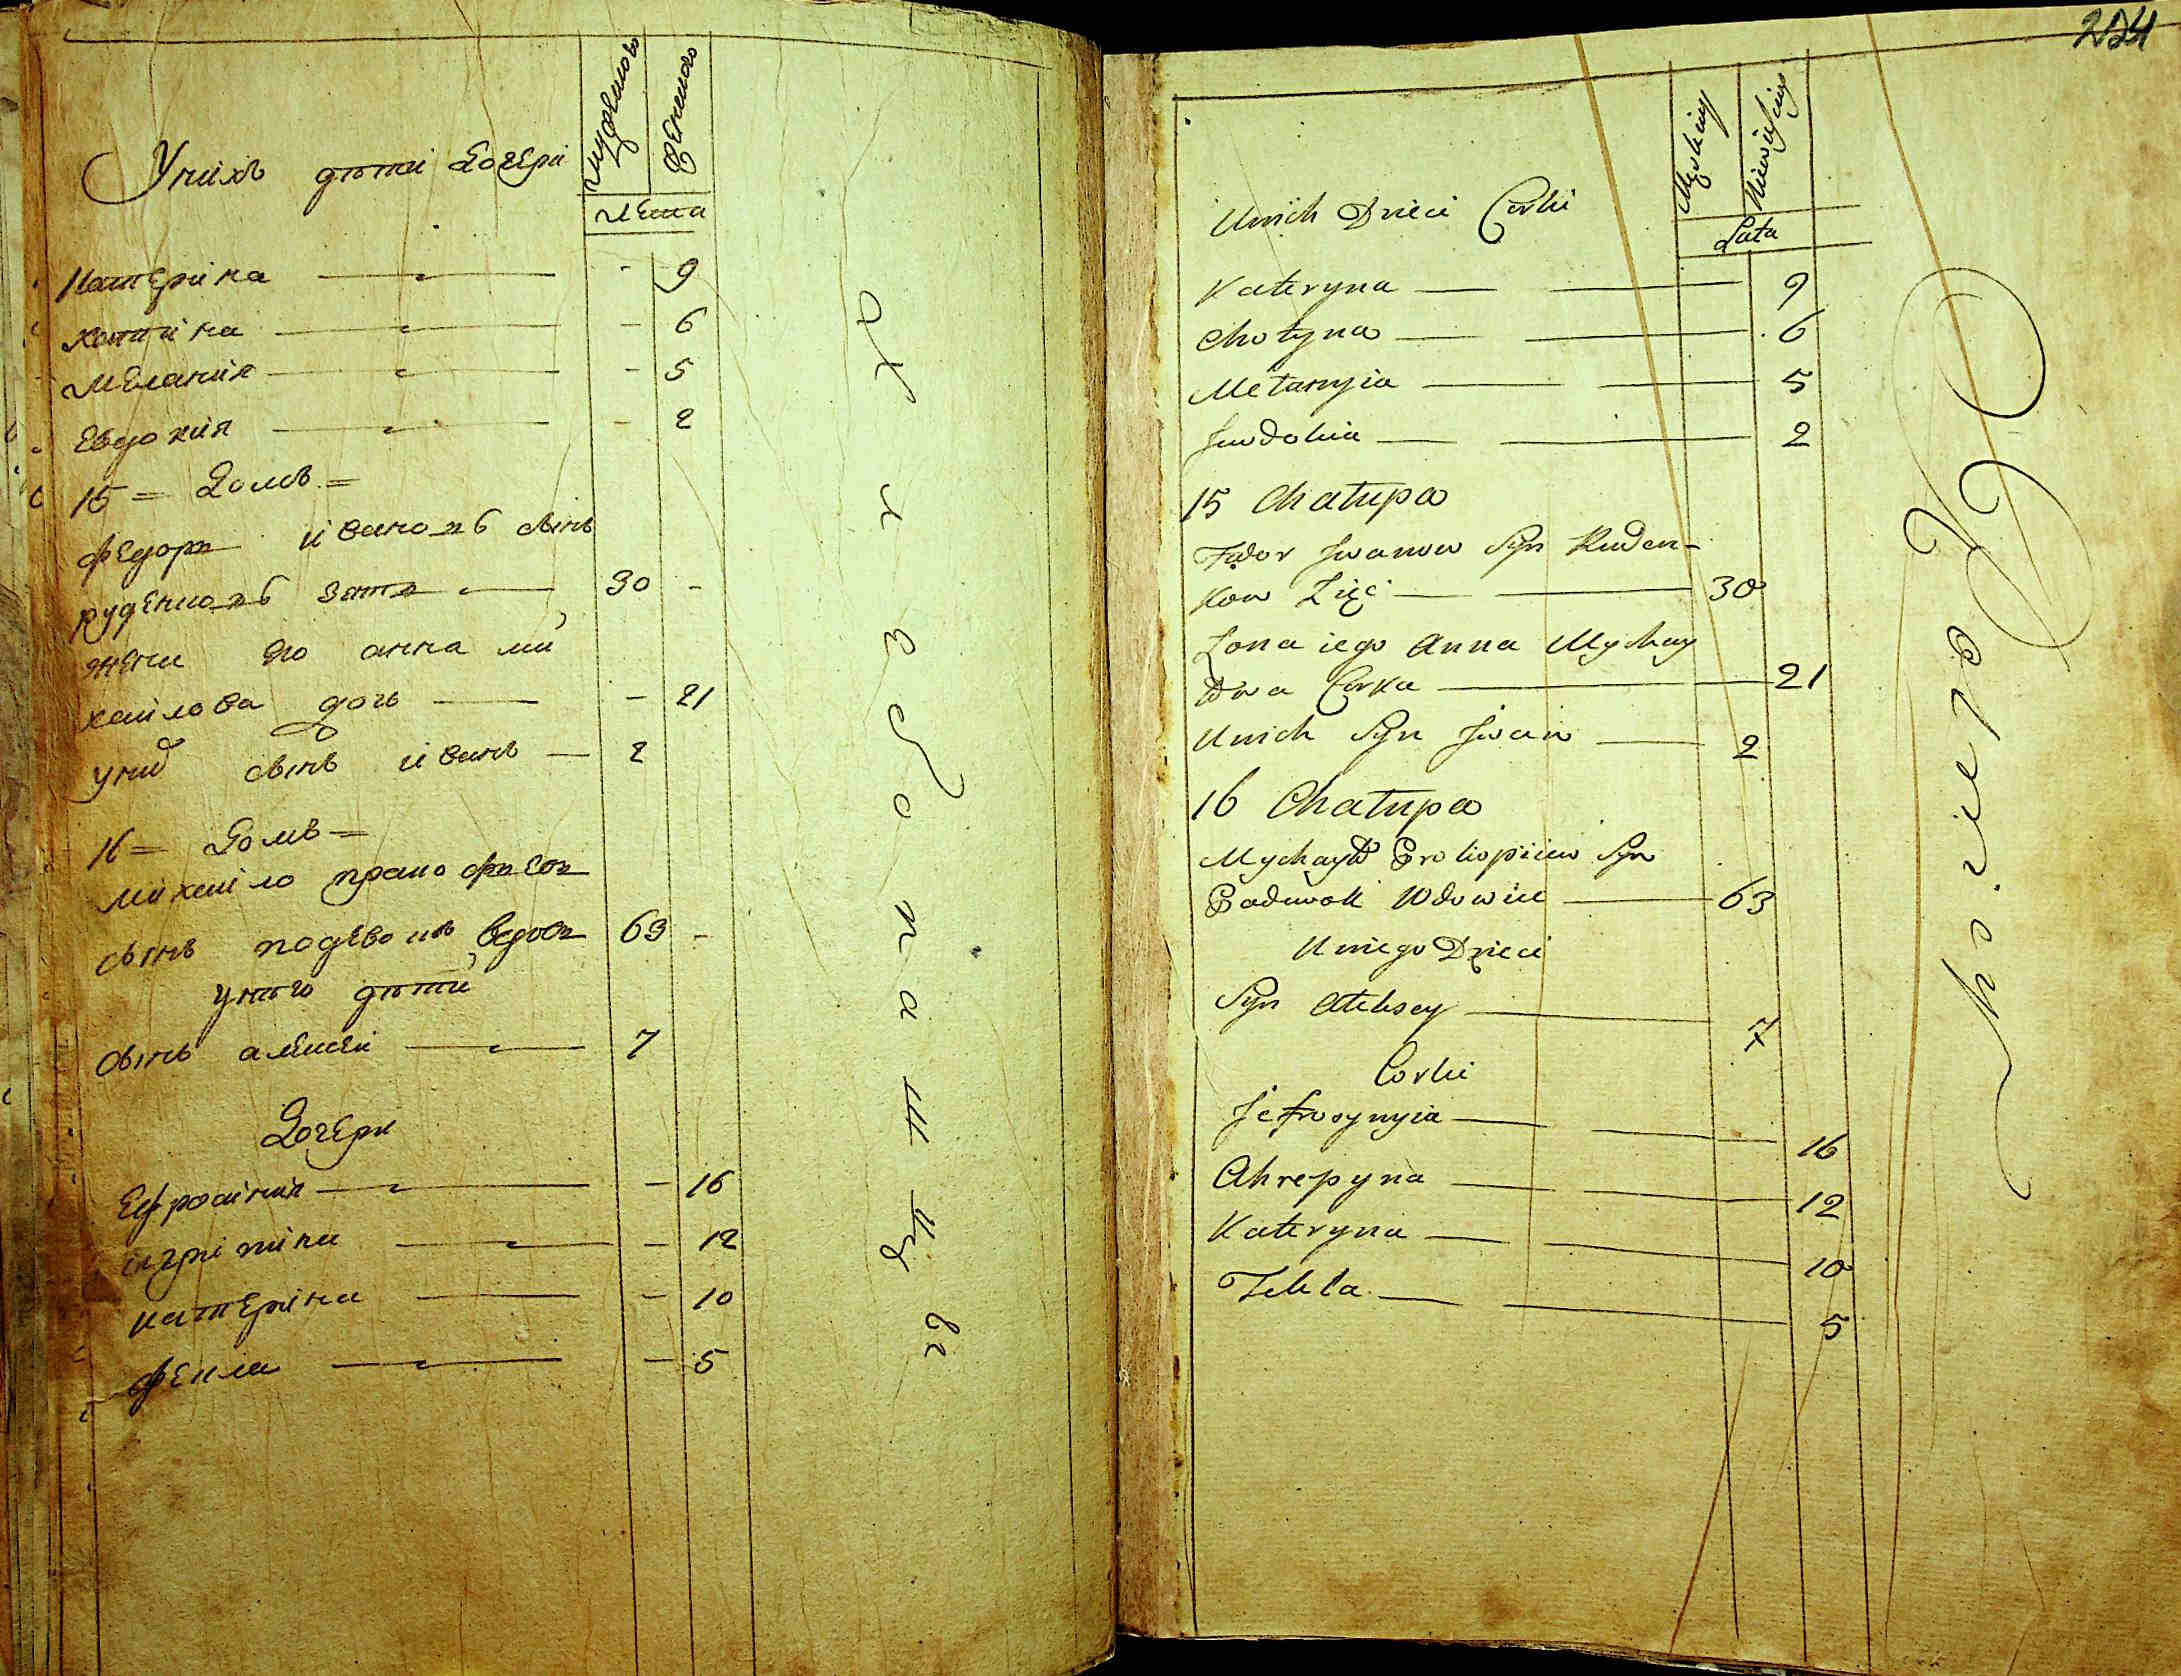 Унихъ дѣти Дочери
мужеска
женска
Лета
Катерiна - 9
хотина - 6
Мелания - 5
Евдокия - 2
15 = Домъ =
Федоръ ивановъ сынъ
руденковъ зять 30 -
жена его анна ми
хаилова дочь - 21
унихъ сынъ иванъ 2
16 = Домъ =
Михаiло
сынъ вдовъ 63 -
унего дѣти
сынъ алексеи 7
Дочери
Ефросиния - 16
агрiпина - 12
катерiна - 10
фекла - 5
204
Męskiey
Niewieściey
Unich Dzieci Corki
Lata
Kateryna 9
Chotyna 6
Mełanyia 5
Jewdokia 2
15 Chałupa
Fedor Jwanow Syn Ruden-
kow Zięć 30
Żona iego Anna Mychay
łowa Corka 21
Unich Syn Jwan 2
16 Chałupa
Mychayło Prokopiiew Syn
Wdowiec 63
Uniego Dzieci
Syn Ałeksey 7
Corki
Jefrosynyia 16
Ahrepyna 12
Kateryna 10
Tekla 5